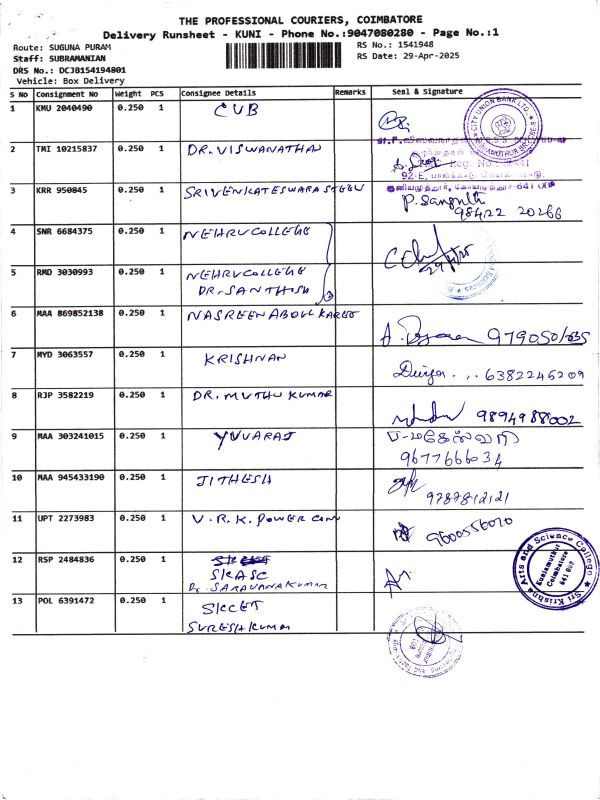 THE PROFESSIONAL COURIERS, COIMBATORE
Delivery Runsheet - KUNI - Phone No.:9047080280 - Page No.:1
Route: SUGUNA PURAM
RS No.: 1541948
Staff: SUBRAMANIAN
RS Date: 29-Apr-2025
DRS No.: DCJB154194801
Vehicle: Box Delivery
S No Consignment No Weight PCS Consignee Details Remarks Seal & Signature
1 KMU 2040490 0.250 1 CUB
CITY UNION BANK LTD.
2 TMI 10215837 0.250 1 DR. VISWANATHAN
Reg. No.
92-E,
3 KRR 950845 0.250 1 SRIVENKATESWARA STEEL
641 008
P. Sangeeth
98422 20266
4 SNR 6684375 0.250 1 NEHRU COLLEGE
29/4/25
5 RMD 3030993 0.250 1 NEHRU COLLEGE
DR. SANTHOSH
6 MAA 869852138 0.250 1 NASREEN ABDUL KAREE
7 MYD 3063557 0.250 1 KRISHNAN
6382245209
8 RJP 3582219 0.250 1 DR. MUTHU KUMAR
9894988002
9 MAA 303241015 0.250 1 YUVARAJ
ப-மகேஸ்வரி
9677666034
10 MAA 945433190 0.250 1 JITHESH
9787812121
11 UPT 2273983 0.250 1 V.R.K. POWER CON
9600556020
12 RSP 2484836 0.250 1
SKASC
Dr. SARAVANAKUMAR
Sri Krishna Arts and Science College
Kuniamuthur
Coimbatore
641 008
13 POL 6391472 0.250 1 SKCET
SURESH KUMAR